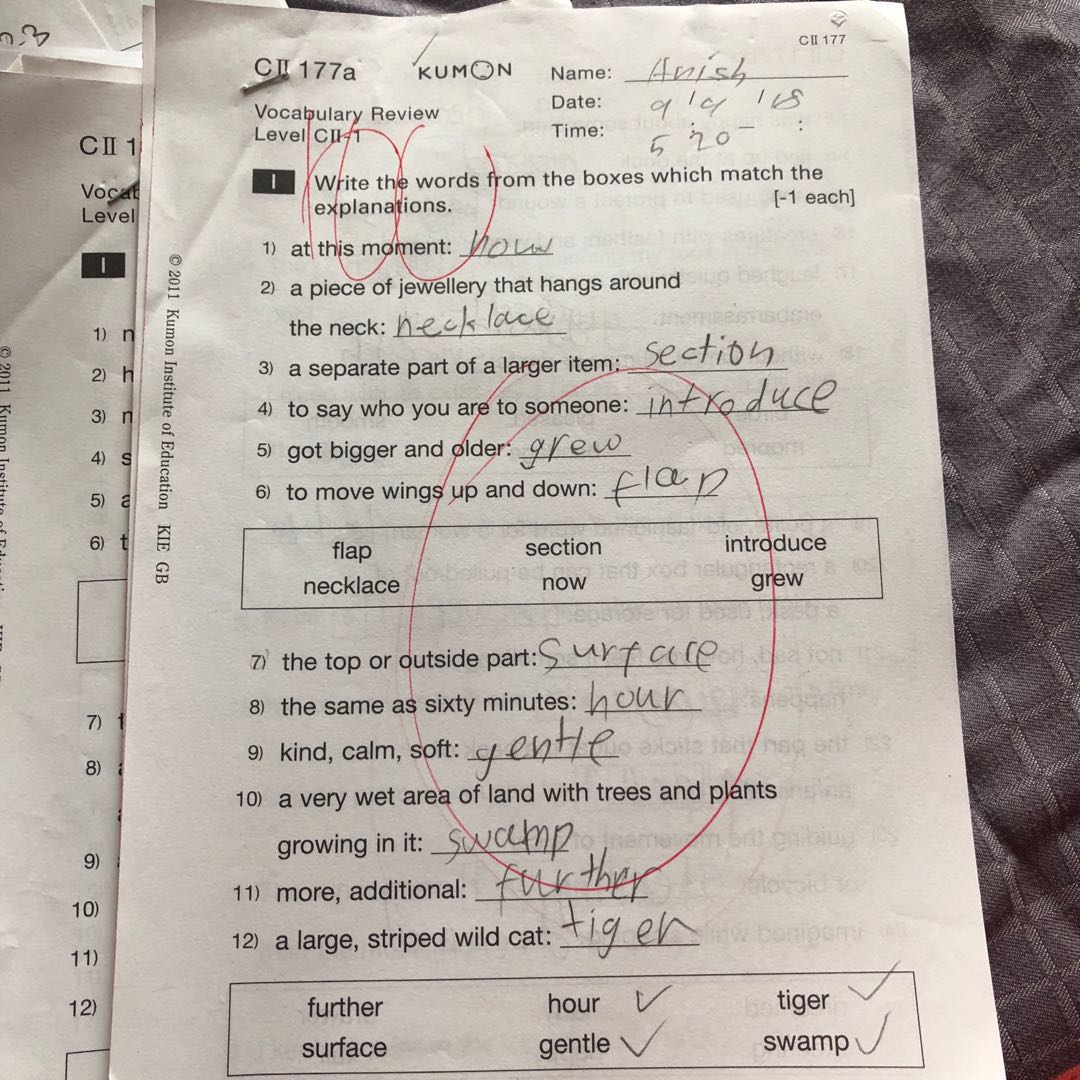 CII 177
CII 177a
KUMON
Name: Anish
Date: 9 '9 '18
Time: 5 : 20 - :
Vocabulary Review
Level CII-1
100
1 Write the words from the boxes which match the
explanations. [-1 each]
1) at this moment: now
2) a piece of jewellery that hangs around
the neck: necklace
3) a separate part of a larger item: section
4) to say who you are to someone: introduce
5) got bigger and older: grew
6) to move wings up and down: flap
flap section introduce
necklace now grew
7) the top or outside part: surface
8) the same as sixty minutes: hour
9) kind, calm, soft: gentle
10) a very wet area of land with trees and plants
growing in it: swamp
11) more, additional: further
12) a large, striped wild cat: tiger
further hour tiger
surface gentle swamp
© 2011 Kumon Institute of Education KIE GB
CII 1
Level
1
1) n
2) h
3) n
4) s
5) a
6) t
7)
8)
9)
10)
11)
12)
© 2011 Kumon Institute of